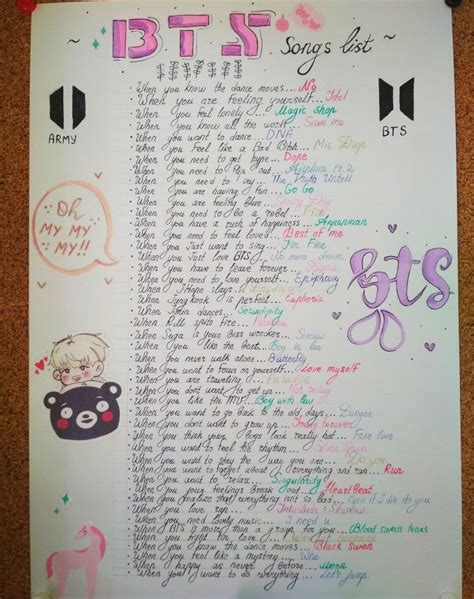 ~ BTS Songs list ~
When you know the dance moves... No
When you are feeling yourself... Idol
When you feel lonely... Magic Shop
When you know all the words... Save me
When you want to dance... DNA
When you feel like a Bad B... Mic Drop
When you need to get hype... Dope
When you need to ... out... Airplane Pt.2
When you need to cry... The Truth Untold
When you are having fun... Go Go
When you are feeling blue... Spring Day
When you need to be a rebel... Fire
When you have a rush of happiness... Anpanman
When you need to feel loved... Best of me
When you just want to sing... I'm Fine
When you just love BTS... No more dream
When you have to leave forever...
When you need to love yourself... Epiphany
When J Hope slays...
When Jungkook is perfect... Euphoria
When Jimin dances... Serendipity
When RM spits fire...
When Suga is your bias wrecker... Seesaw
When you like the Best... Boy in luv
When you never walk alone... Butterfly
When you want to focus on yourself... Love myself
When you are traveling... Paradise
When you don't want to get up... Not today
When you like the MV... Boy with luv
When you want to go back to the old days... Danger
When you don't want to grow up... Young Forever
When you think your boys look really hot... Fake love
When you want to feel the rhythm...
When you want to stay the way you are... Do you
When you want to forget about everything and run... Run
When you want to relax... Singularity
When you your feelings break out... HeartBeat
When you realize that everything not so bad...
When you love run... Interlude: Shadow
When you need lovely music... I need u
When BTS is more than a group for you... Blood sweat tears
When you fight for love...
When you know the dance moves... Black Swan
When you feel like a mystery... Who
When happy as never before... Moon
When you want to do everything... Let's jump.
ARMY
BTS
Oh
MY MY
MY!!
BTS